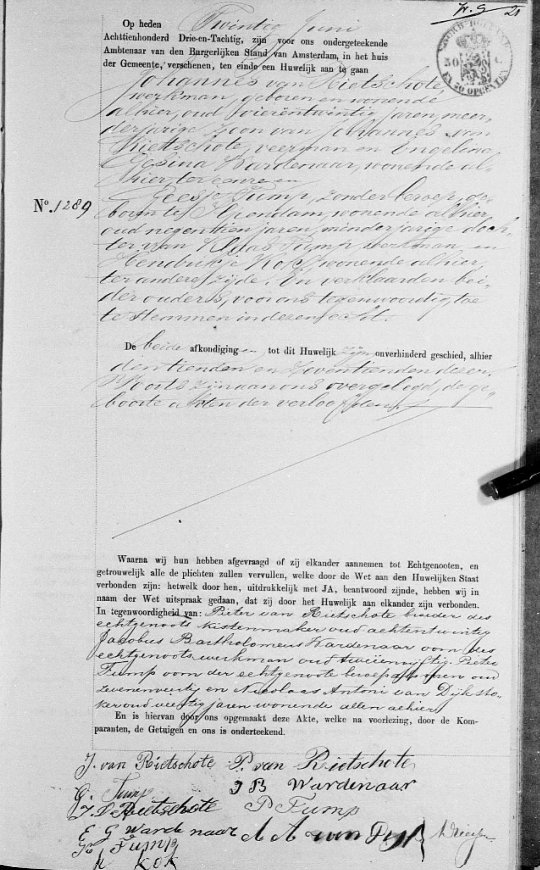 Op heden Twintig Juni
Achttienhonderd Drie-en-Tachtig, zijn voor ons ondergeteekende
Ambtenaar van den Burgerlijken Stand van Amsterdam, in het huis
der Gemeente, verschenen, ten einde een Huwelijk aan te gaan
Johannes van Rietschote,
werkman, geboren en wonende
alhier, oud vierentwintig jaren, meer
derjarige zoon van Johannes van
Rietschote, veerman en Engelina
Gesina Wardenaar, wonende al
hier, ter eenre en
Geesje Tump, zonder beroep, ge
boren te Ilpendam, wonende alhier
oud negentien jaren, minderjarige doch
ter van Klaas Tump werkman en
Hendrikje Kok, wonende alhier,
ter andere zijde. En verklaarden bei
der ouders, voor ons tegenwoordig, toe
te stemmen in dezen echt.
No. 1289
De beide afkondigingen tot dit Huwelijk zijn onverhinderd geschied, alhier
den tienden en zeventienden dezer.
Voorts zijn aan ons overgelegd, de ge
boorte akten der verloofden.
Waarna wij hun hebben afgevraagd of zij elkander aannemen tot Echtgenooten, en
getrouwelijk alle de plichten zullen vervullen, welke door de Wet aan den Huwelijken Staat
verbonden zijn: hetwelk door hen, uitdrukkelijk met JA, beantwoord zijnde, hebben wij in
naam der Wet uitspraak gedaan, dat zij door het Huwelijk aan elkander zijn verbonden.
In tegenwoordigheid van: Pieter van Rietschote broeder des
echtgenoots kistenmaker oud achtentwintig
Jacobus Bartholomeus Wardenaar oom des
echtgenoots werkman oud tweeenvijftig, Pieter
Tump oom der echtgenoote oud
zevenenveertig en Nicolaas Antoni van Dijk sto-
ker oud veertig jaren wonende allen alhier
En is hiervan door ons opgemaakt deze Akte, welke na voorlezing, door de Kom-
paranten, de Getuigen en ons is onderteekend.
J. van Rietschote P. van Rietschote
G. Tump J B Wardenaar
Rietschote P Tump
E G Wardenaar van Dijk
K Tump
H KOK